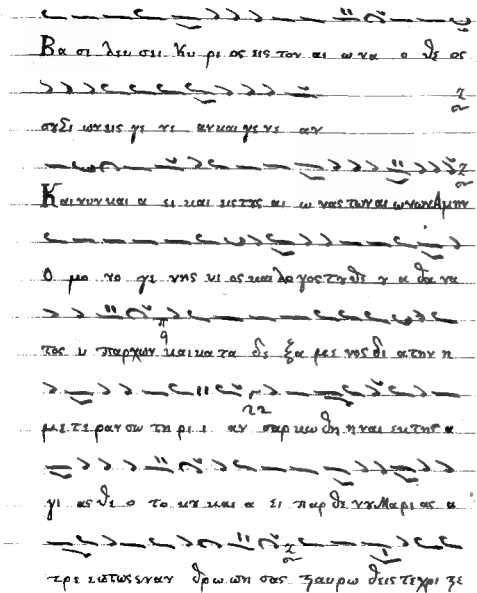 Βα σι λευ σει Κυ ρι ος εις τον αι ω να ο θε ος
σȣ Σι ων εις γε νε αν και γε νε αν
Και νυν και α ει και εις τȣς αι ω νας των αι ωνων Αμην
Ο μο νο γε νης υι ος και λογος τȣ θε ȣ α θα να
τος υ παρχων και κα τα δε ξα με νος δι α την η
με τε ραν σω τη ρι ι αν σαρ κω θη ναι εκ της α
γι ας θε ο το κȣ και α ει παρ θε νȣ Μαρι ας α
τρε επτως εναν θρω πη σας σταυρω θεις τε χρι ξε